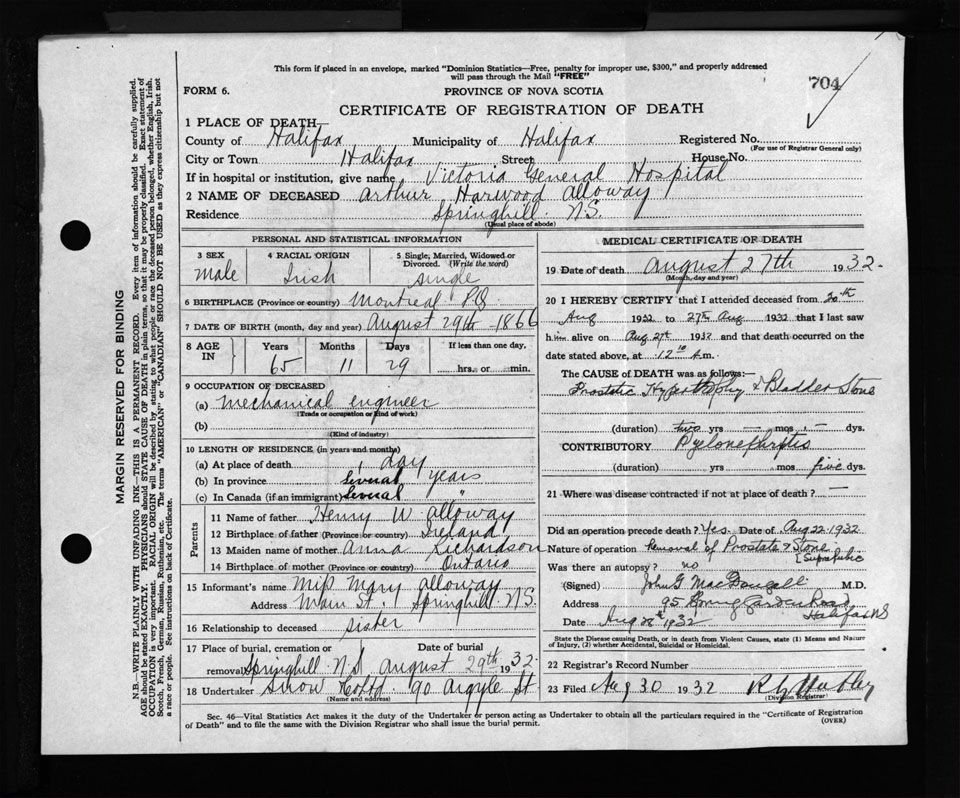 This form if placed in an envelope, marked "Dominion Statistics—Free, penalty for improper use, $300," and properly addressed
will pass through the Mail "FREE"
704
FORM 6.
PROVINCE OF NOVA SCOTIA
CERTIFICATE OF REGISTRATION OF DEATH
1 PLACE OF DEATH—
County of Halifax Municipality of Halifax Registered No.
(For use of Registrar General only)
City or Town Halifax Street House No.
If in hospital or institution, give name Victoria General Hospital
2 NAME OF DECEASED Arthur Harwood Alloway
Residence Springhill N.S.
(Usual place of abode)
PERSONAL AND STATISTICAL INFORMATION
3 SEX 4 RACIAL ORIGIN 5 Single, Married, Widowed or
Divorced. (Write the word)
Male Irish single
6 BIRTHPLACE (Province or country) Montreal PQ
7 DATE OF BIRTH (month, day and year) August 29th 1866
8 AGE IN Years Months Days If less than one day,
65 11 29 hrs. or min.
9 OCCUPATION OF DECEASED
(a) Mechanical engineer
(Trade or occupation or kind of work)
(b)
(Kind of industry)
10 LENGTH OF RESIDENCE (in years and months)
(a) At place of death 1 day
(b) In province Several years
(c) In Canada (if an immigrant) Several "
Parents
11 Name of father Henry W Alloway
12 Birthplace of father (Province or country) Ireland
13 Maiden name of mother Anna Richardson
14 Birthplace of mother (Province or country) Ontario
15 Informant's name Miss Mary Alloway
Address Main St. Springhill N.S.
16 Relationship to deceased sister
17 Place of burial, cremation or Date of burial
removal Springhill N.S August 29th 1932.
18 Undertaker Snow Co Ltd. 90 Argyle St
(Name and address)
MEDICAL CERTIFICATE OF DEATH
19 Date of death August 27th 1932.
(Month, day and year)
20 I HEREBY CERTIFY that I attended deceased from 20th
Aug 1932 to 27th Aug 1932 that I last saw
him alive on Aug 27th 1932 and that death occurred on the
date stated above, at 12 10 A.m.
The CAUSE of DEATH was as follows:
Prostatic Hypertrophy & Bladder Stone
(duration) two yrs — mos. — dys.
CONTRIBUTORY Pylonephritis
(duration) yrs mos five dys.
21 Where was disease contracted if not at place of death? —
Did an operation precede death? Yes. Date of Aug 22 1932.
Nature of operation Removal of Prostate & Stone
[Suprapubic
Was there an autopsy? no
(Signed) John G MacDougall M.D.
Address 95 Spring Garden Road
Halifax NS
Date Aug 28th 1932
State the Disease causing Death, or in death from Violent Causes, state (1) Means and Nature
of Injury, (2) whether Accidental, Suicidal or Homicidal.
22 Registrar's Record Number
23 Filed Aug 30 1932
(Division Registrar)
Sec. 46—Vital Statistics Act makes it the duty of the Undertaker or person acting as Undertaker to obtain all the particulars required in the "Certificate of Registration
of Death" and to file the same with the Division Registrar who shall issue the burial permit. (OVER)
MARGIN RESERVED FOR BINDING
N.B.—WRITE PLAINLY WITH UNFADING INK—THIS IS A PERMANENT RECORD. Every item of information should be carefully supplied.
AGE should be stated EXACTLY. PHYSICIANS should STATE CAUSE OF DEATH in plain terms, so that it may be properly classified. Exact statement of
OCCUPATION is very important. RACIAL ORIGIN will be described by stating to what people or race the deceased person belonged, whether English, Irish,
Scotch, French, German, Russian, Ruthenian, etc. The terms "AMERICAN" or "CANADIAN" SHOULD NOT BE USED as they express citizenship but not
a race or people. See instructions on back of Certificate.